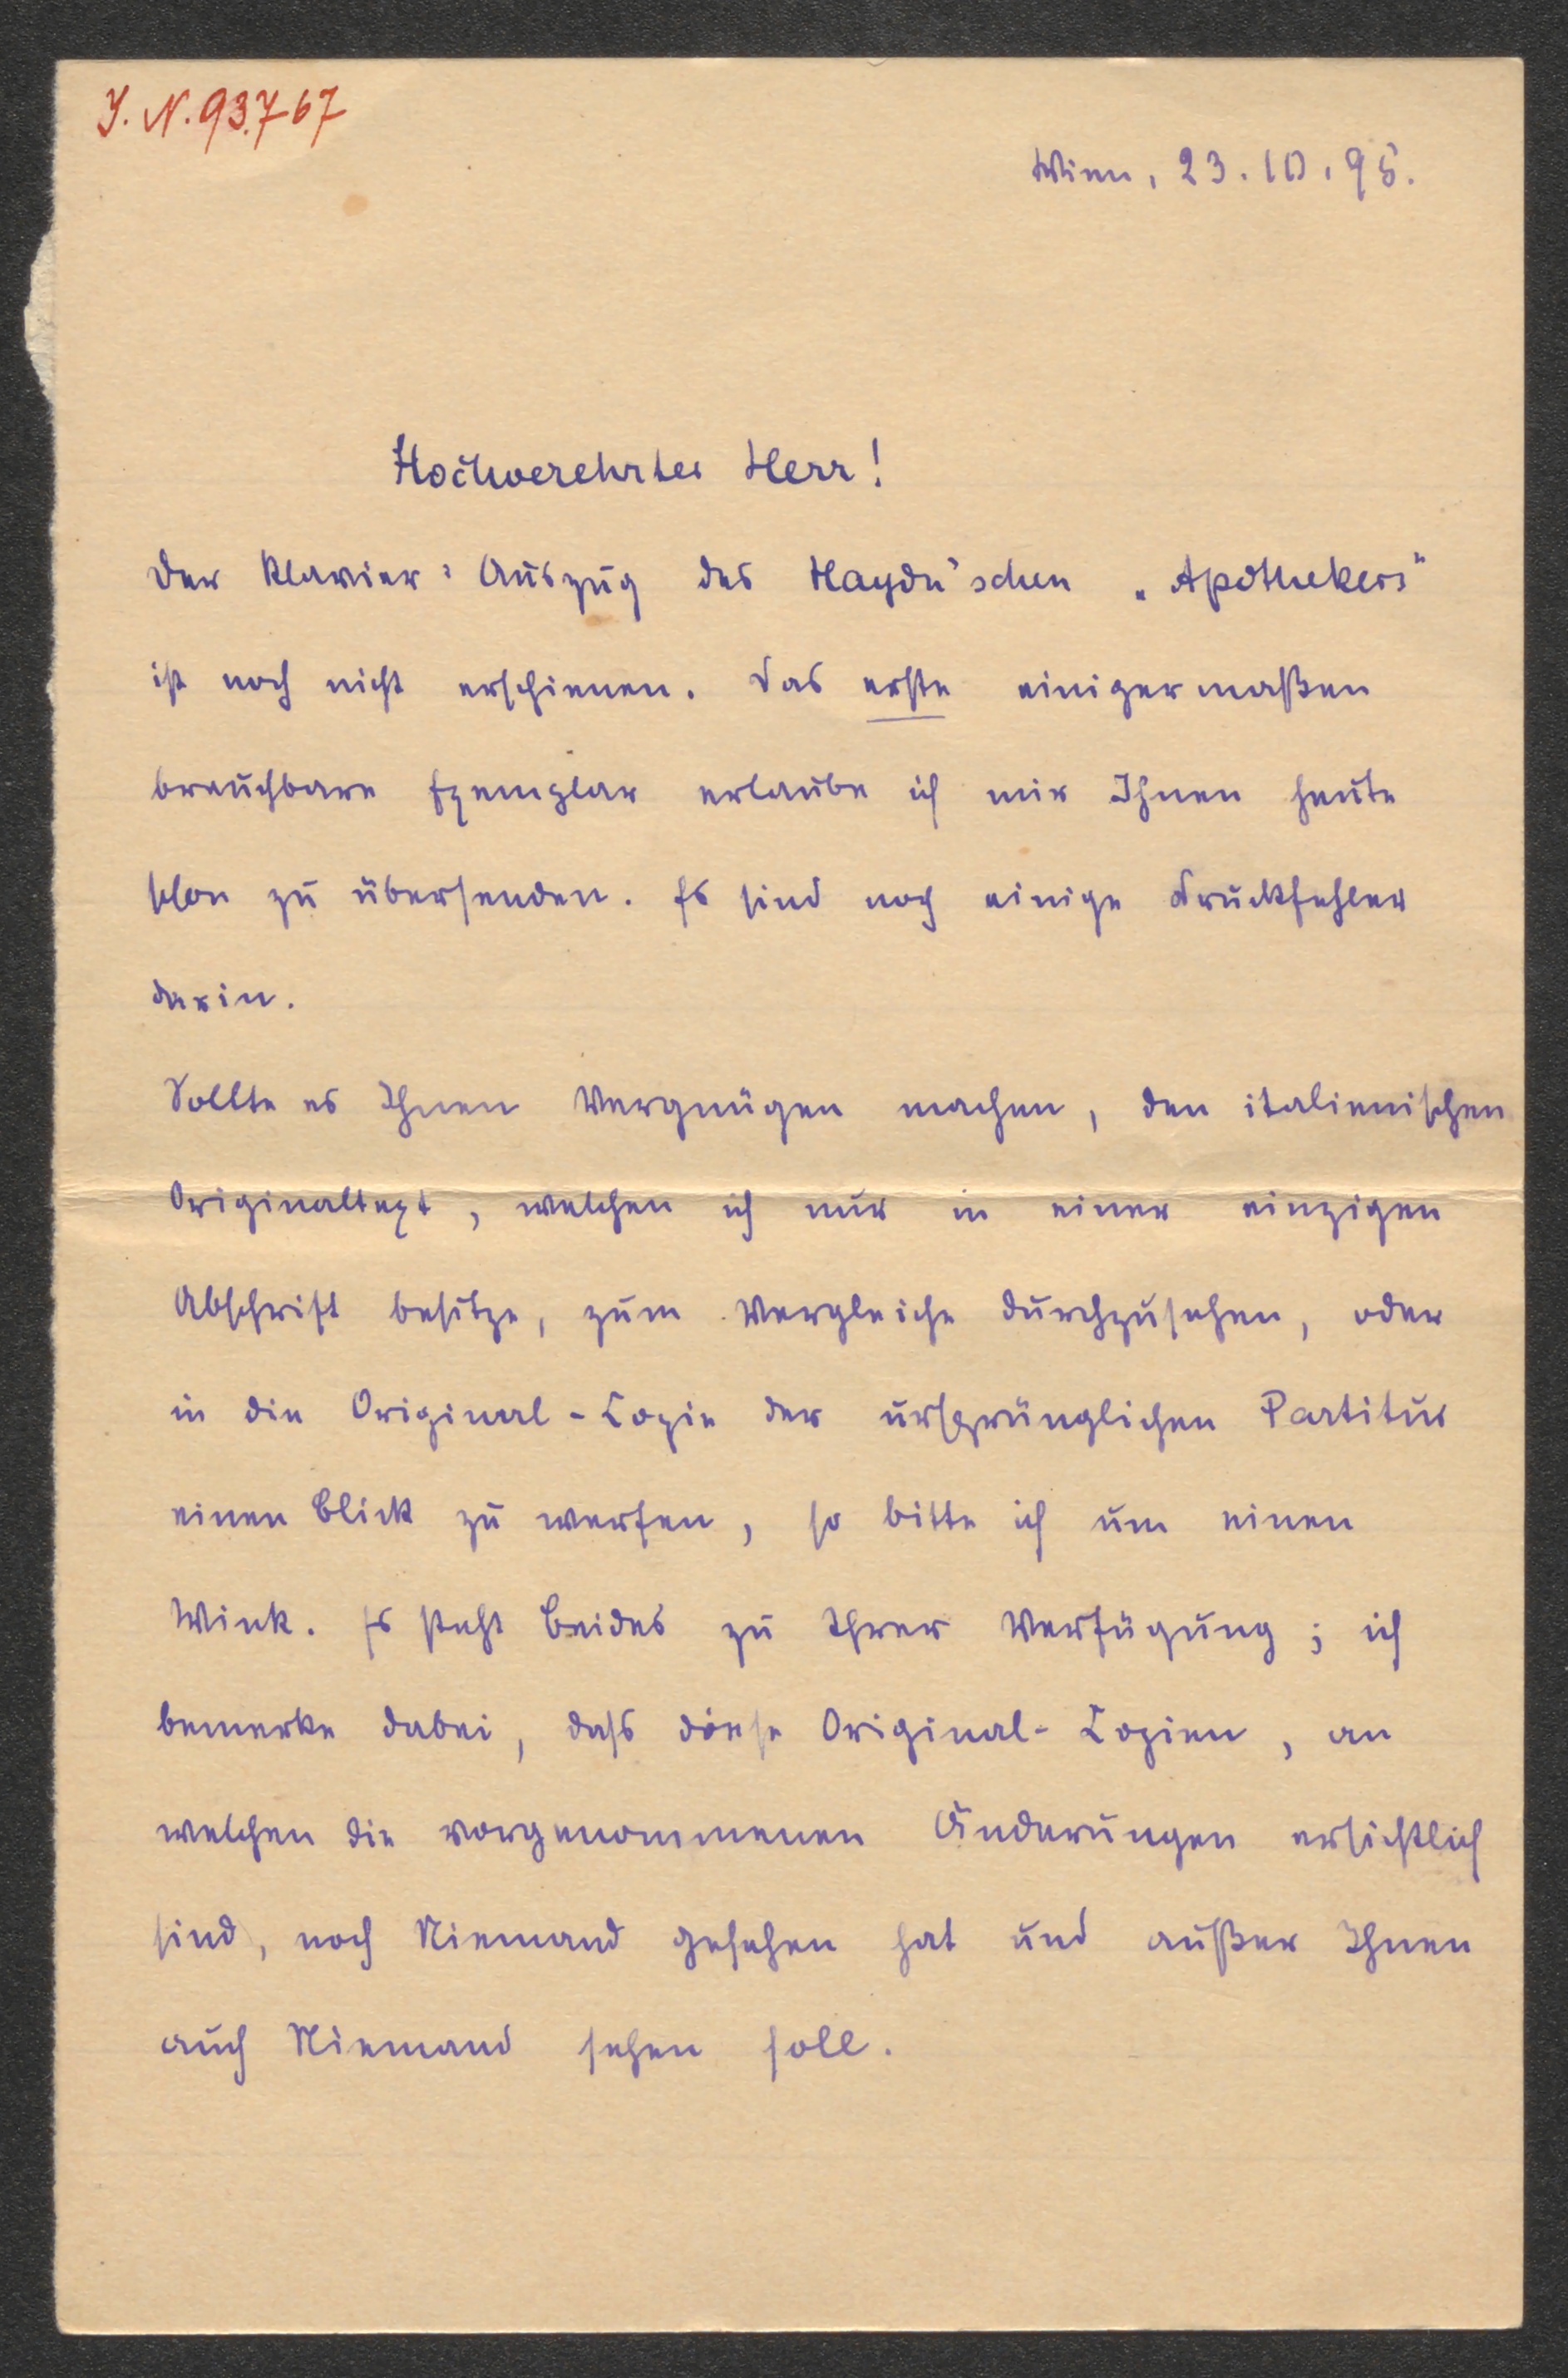 J. N. 93.767
Wien, 23.10.95.
Hochverehrter Herr!
Der Klavier=Auszug des Haydn'schen „Apothekers"
ist noch nicht erschienen. Das erste einigermaßen
brauchbare Exemplar erlaube ich mir Ihnen heute
schon zu übersenden. Es sind noch einige Druckfehler
darin.
Sollte es Ihnen Vergnügen machen, den italienischen
Originaltext, welchen ich nur in einer einzigen
Abschrift besitze, zum Vergleiche durchzusehen, oder
in die Original-Copie der ursprünglichen Partitur
einen Blick zu werfen, so bitte ich um einen
Wink. Es steht Beides zu Ihrer Verfügung; ich
bemerke dabei, dass diese Original-Copien, an
welchen die vorgenommenen Änderungen ersichtlich
sind, noch Niemand gesehen hat und außer Ihnen
auch Niemand sehen soll.